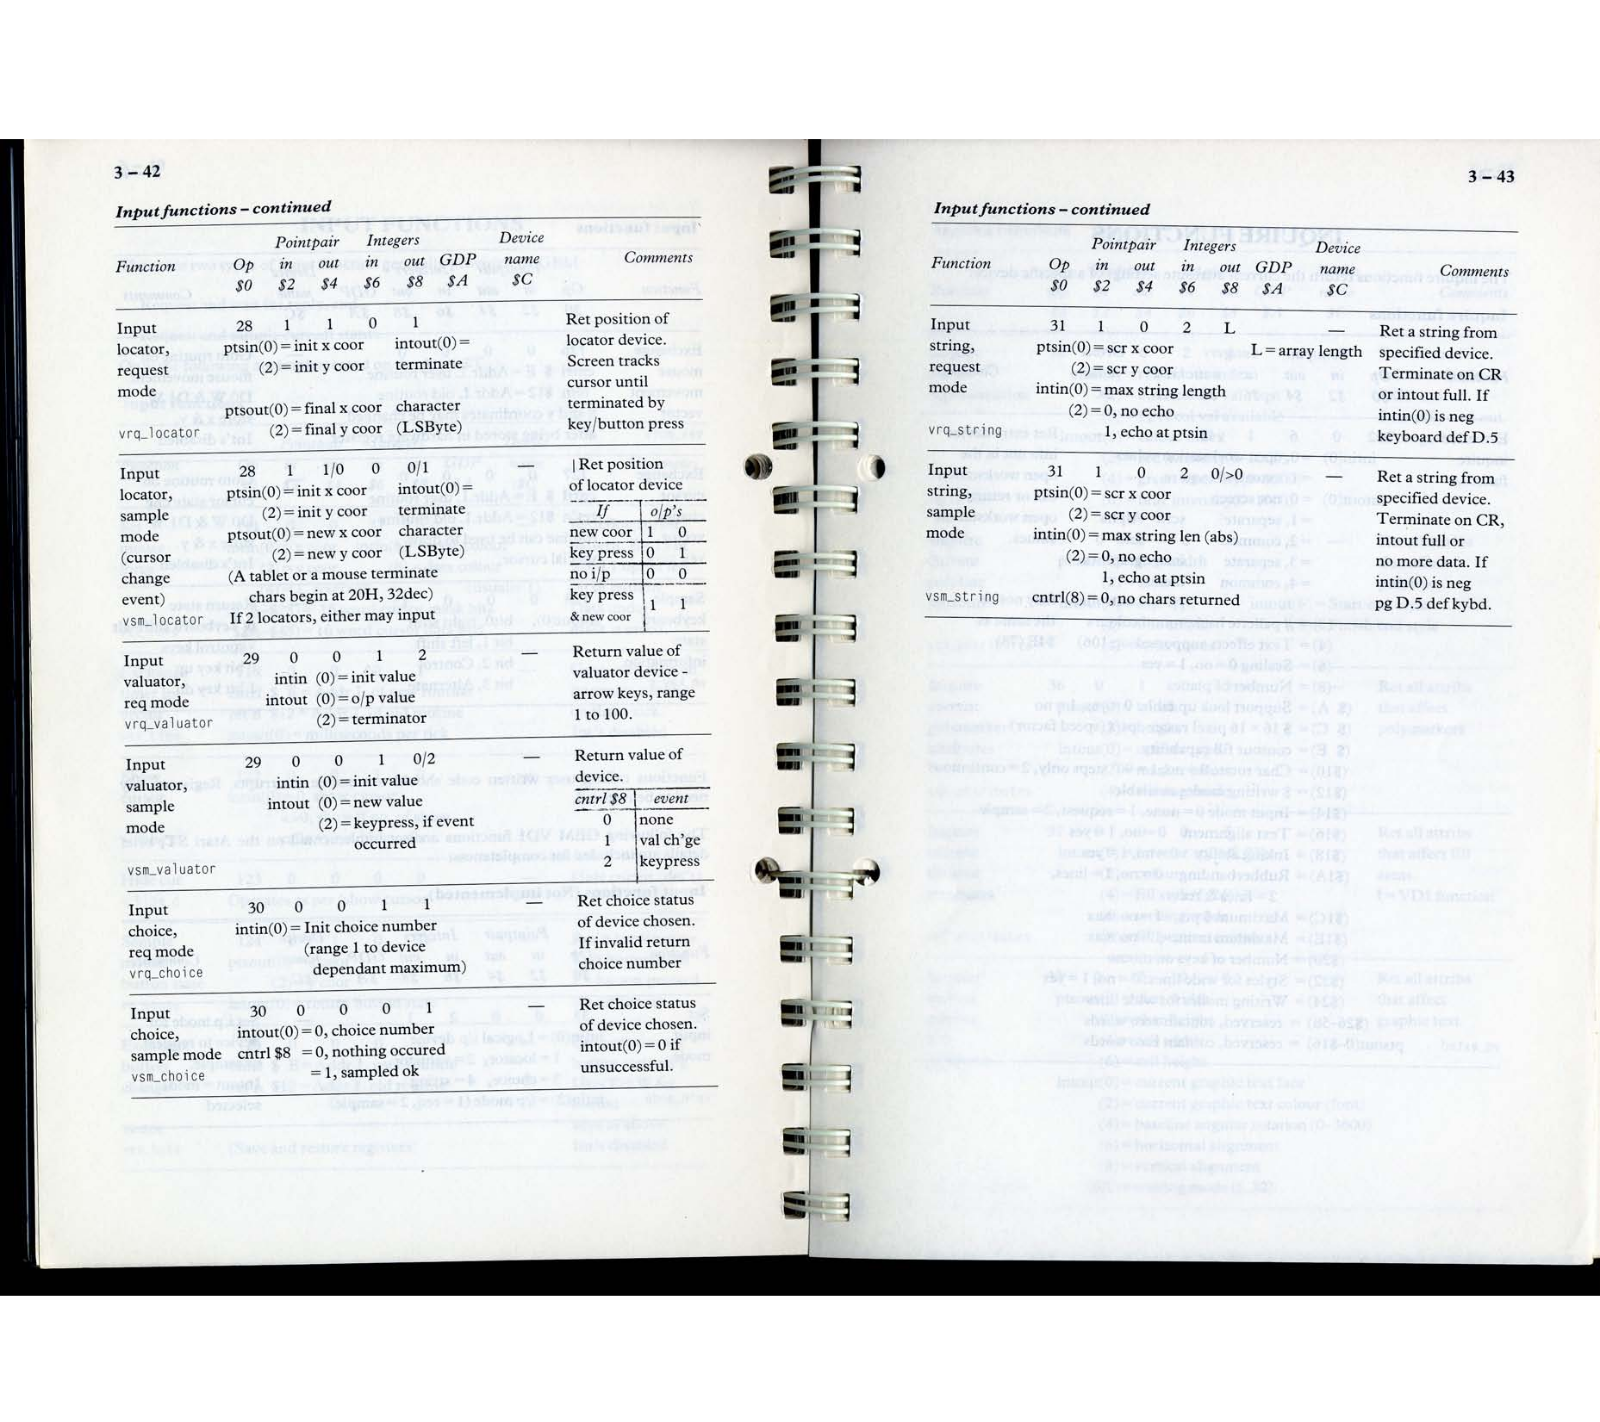 3 – 42
Input functions – continued
Pointpair Integers Device
Function Op in out in out GDP name Comments
$0 $2 $4 $6 $8 $A $C
Input 28 1 1 0 1 Ret position of
locator, ptsin(0) = init x coor intout(0) = locator device.
request (2) = init y coor terminate Screen tracks
mode cursor until
ptsout(0) = final x coor character terminated by
vrq_locator (2) = final y coor (LSByte) key/button press
Input 28 1 1/0 0 0/1 — | Ret position
locator, ptsin(0) = init x coor intout(0) = of locator device
sample (2) = init y coor terminate If o/p's
mode ptsout(0) = new x coor character new coor 1 0
(cursor (2) = new y coor (LSByte) key press 0 1
change (A tablet or a mouse terminate no i/p 0 0
event) chars begin at 20H, 32dec) key press
vsm_locator If 2 locators, either may input & new coor 1 1
Input 29 0 0 1 2 — Return value of
valuator, intin (0) = init value valuator device -
req mode intout (0) = o/p value arrow keys, range
vrq_valuator (2) = terminator 1 to 100.
Input 29 0 0 1 0/2 — Return value of
valuator, intin (0) = init value device.
sample intout (0) = new value cntrl $8 event
mode (2) = keypress, if event 0 none
occurred 1 val ch'ge
vsm_valuator 2 keypress
Input 30 0 0 1 1 — Ret choice status
choice, intin(0) = Init choice number of device chosen.
req mode (range 1 to device If invalid return
vrq_choice dependant maximum) choice number
Input 30 0 0 0 1 — Ret choice status
choice, intout(0) = 0, choice number of device chosen.
sample mode cntrl $8 = 0, nothing occured intout(0) = 0 if
vsm_choice = 1, sampled ok unsuccessful.
3 – 43
Input functions – continued
Pointpair Integers Device
Function Op in out in out GDP name Comments
$0 $2 $4 $6 $8 $A $C
Input 31 1 0 2 L — Ret a string from
string, ptsin(0) = scr x coor L = array length specified device.
request (2) = scr y coor Terminate on CR
mode intin(0) = max string length or intout full. If
(2) = 0, no echo intin(0) is neg
vrq_string 1, echo at ptsin keyboard def D.5
Input 31 1 0 2 0/>0 — Ret a string from
string, ptsin(0) = scr x coor specified device.
sample (2) = scr y coor Terminate on CR,
mode intin(0) = max string len (abs) intout full or
(2) = 0, no echo no more data. If
1, echo at ptsin intin(0) is neg
vsm_string cntrl(8) = 0, no chars returned pg D.5 def kybd.